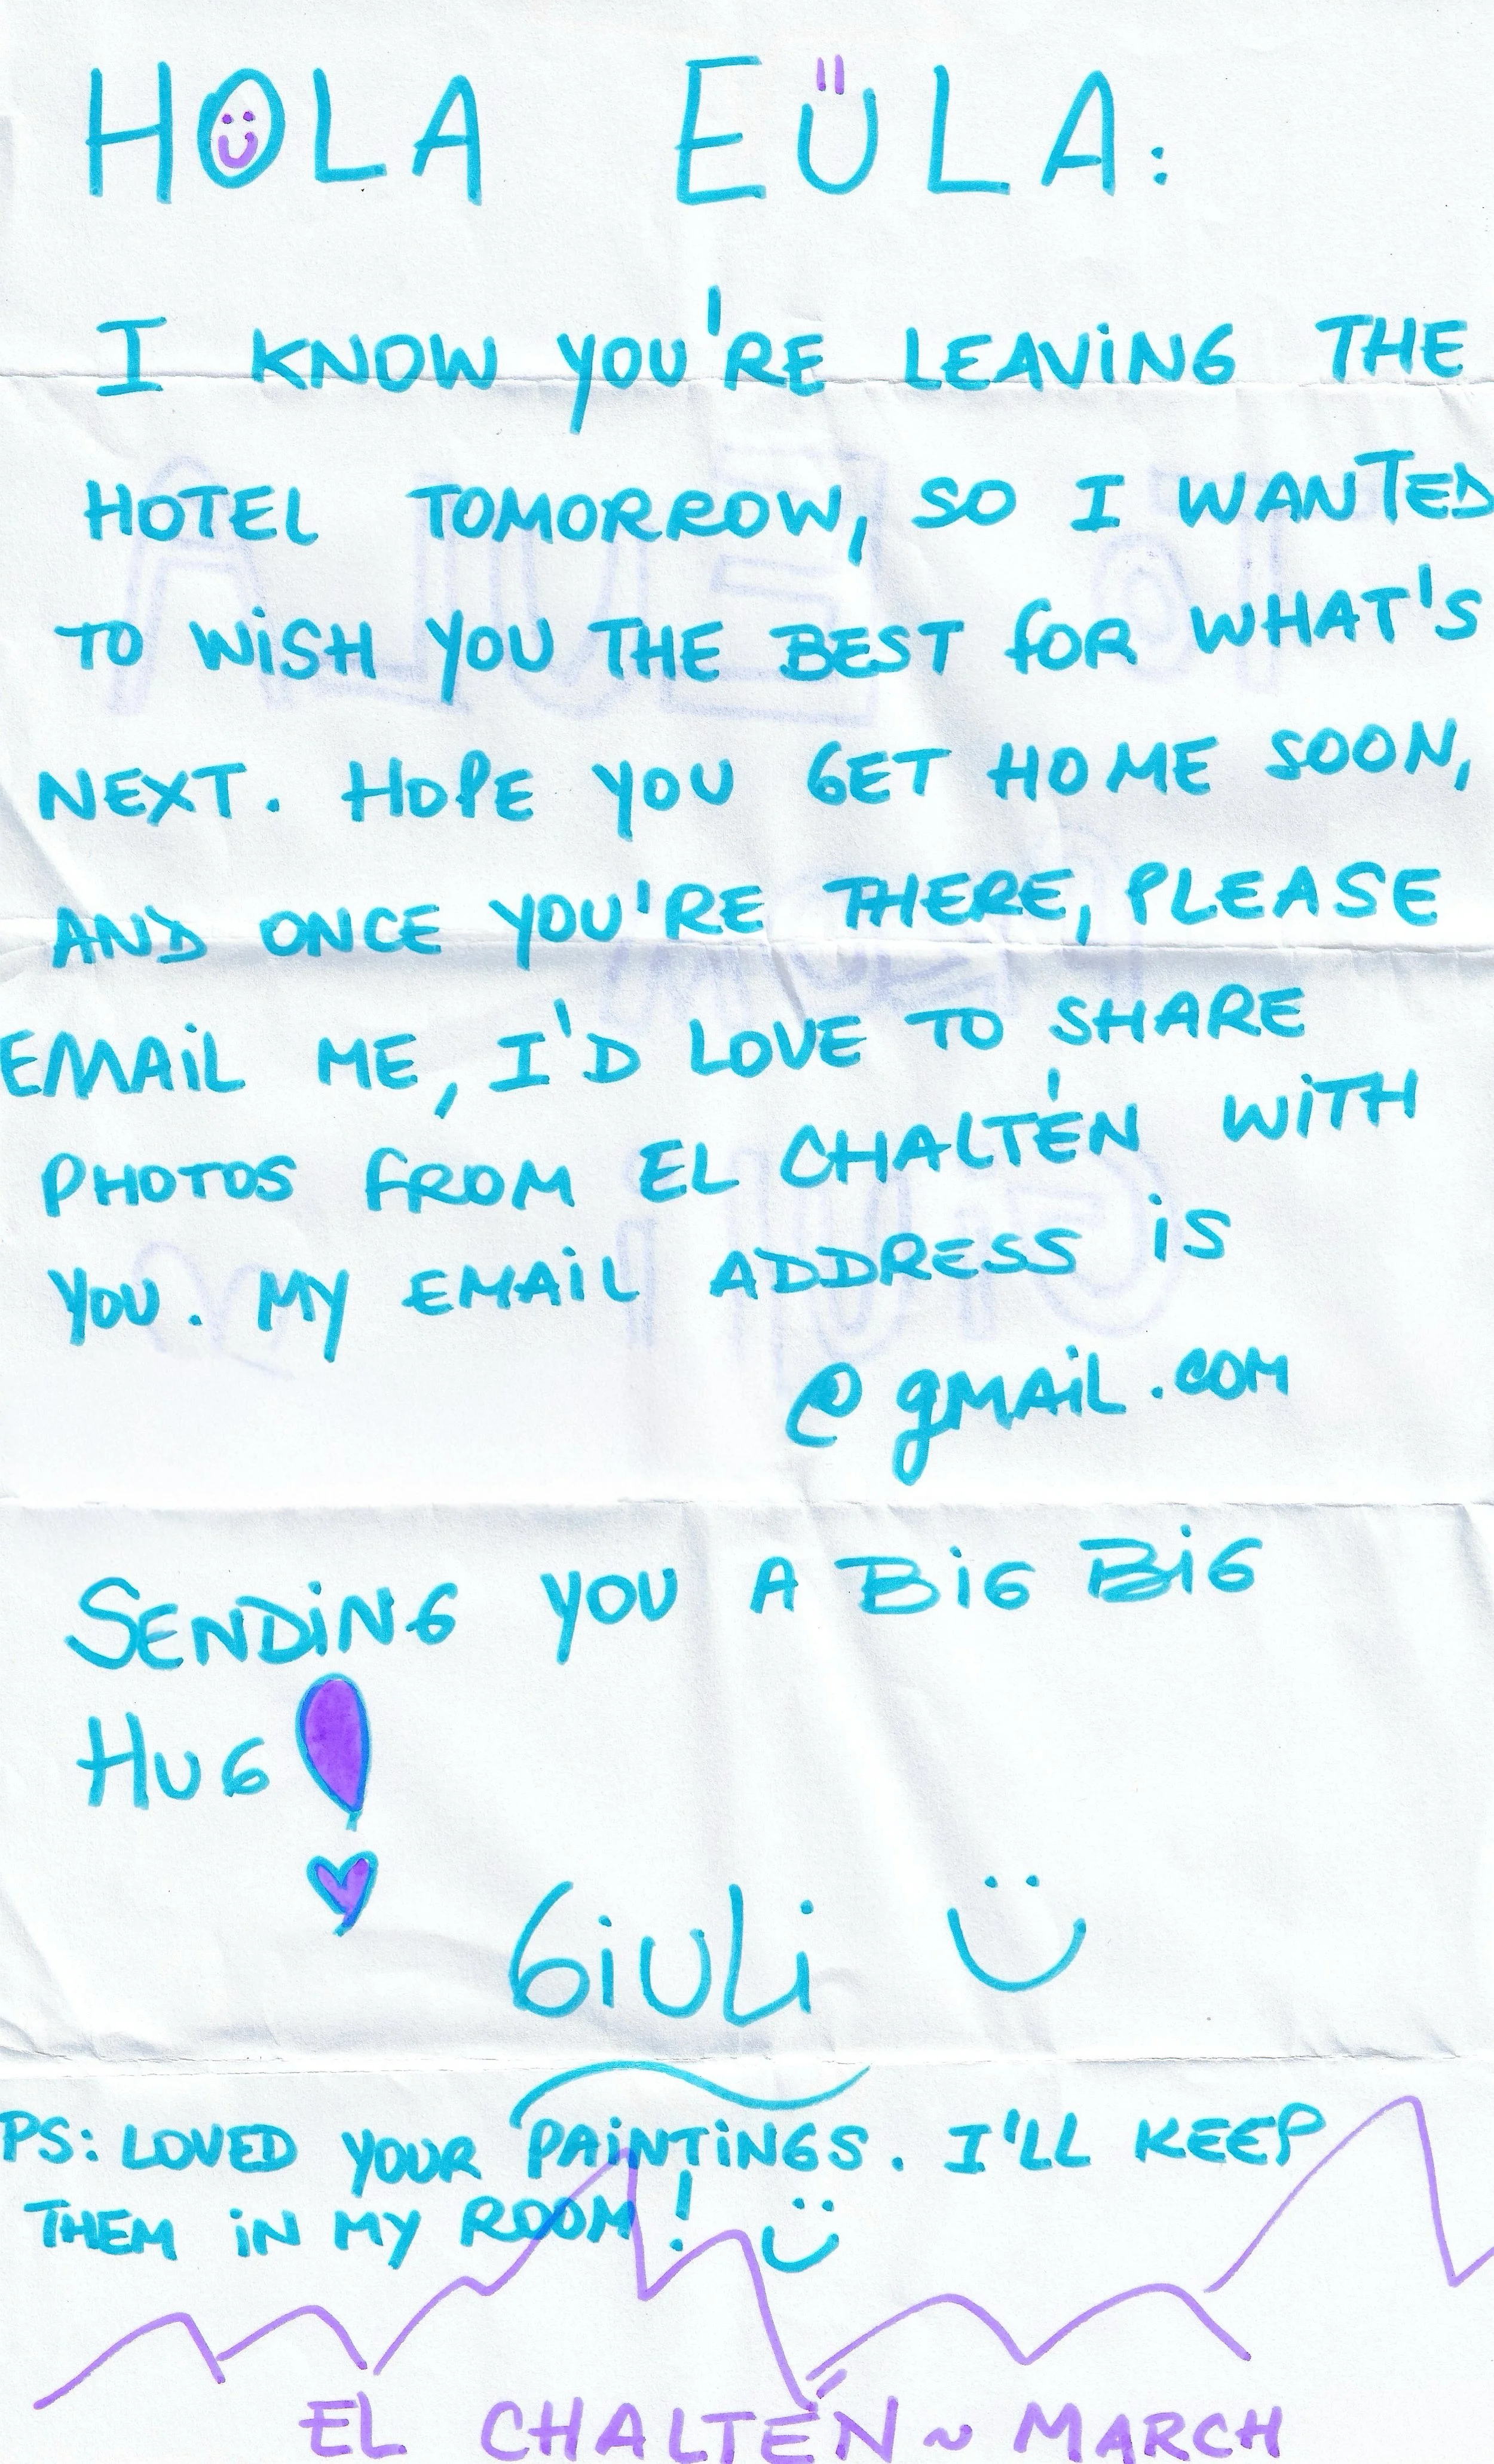 HOLA EÜLA:
I KNOW YOU'RE LEAViNG THE
HOTEL TOMORROW, SO I WANTED
TO WiSH YOU THE BEST FOR WHAT'S
NEXT. HOPE YOU GET HOME SOON,
AND ONCE YOU'RE THERE, PLEASE
EMAiL ME, I'D LOVE TO SHARE
PHOTOS FROM EL CHALTÉN WiTH
YOU. MY EMAiL ADDRESS iS
@gmAiL.COM
SENDiNG YOU A BiG BiG
HUG!
GiULi
PS: LOVED YOUR PAiNTiNGS. I'LL KEEP
THEM iN MY ROOM!
EL CHALTÉN ~ MARCH